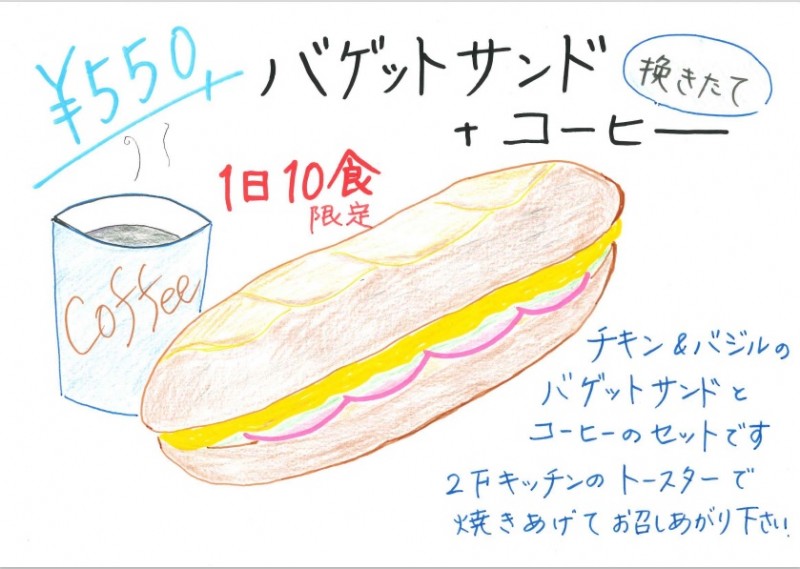 ¥550
バゲットサンド
挽きたて
+コーヒー
1日10食
限定
Coffee
チキン&バジルの
バゲットサンドと
コーヒーのセットです
2Fキッチンのトースターで
焼きあげてお召しあがり下さい